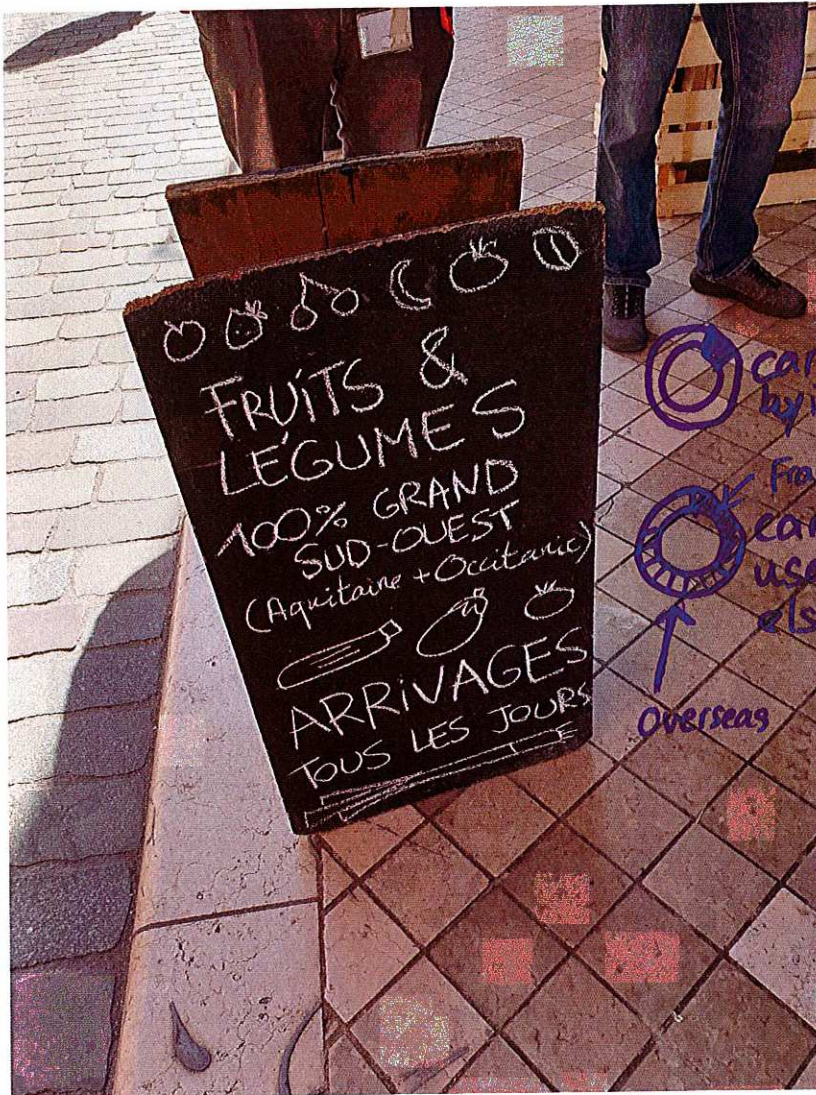 FRUiTS &
LÉGUMES
100% GRAND
SUD-OUEST
(Aquitaine + Occitanie)
ARRiVAGES
TOUS LES JOURS
Overseas